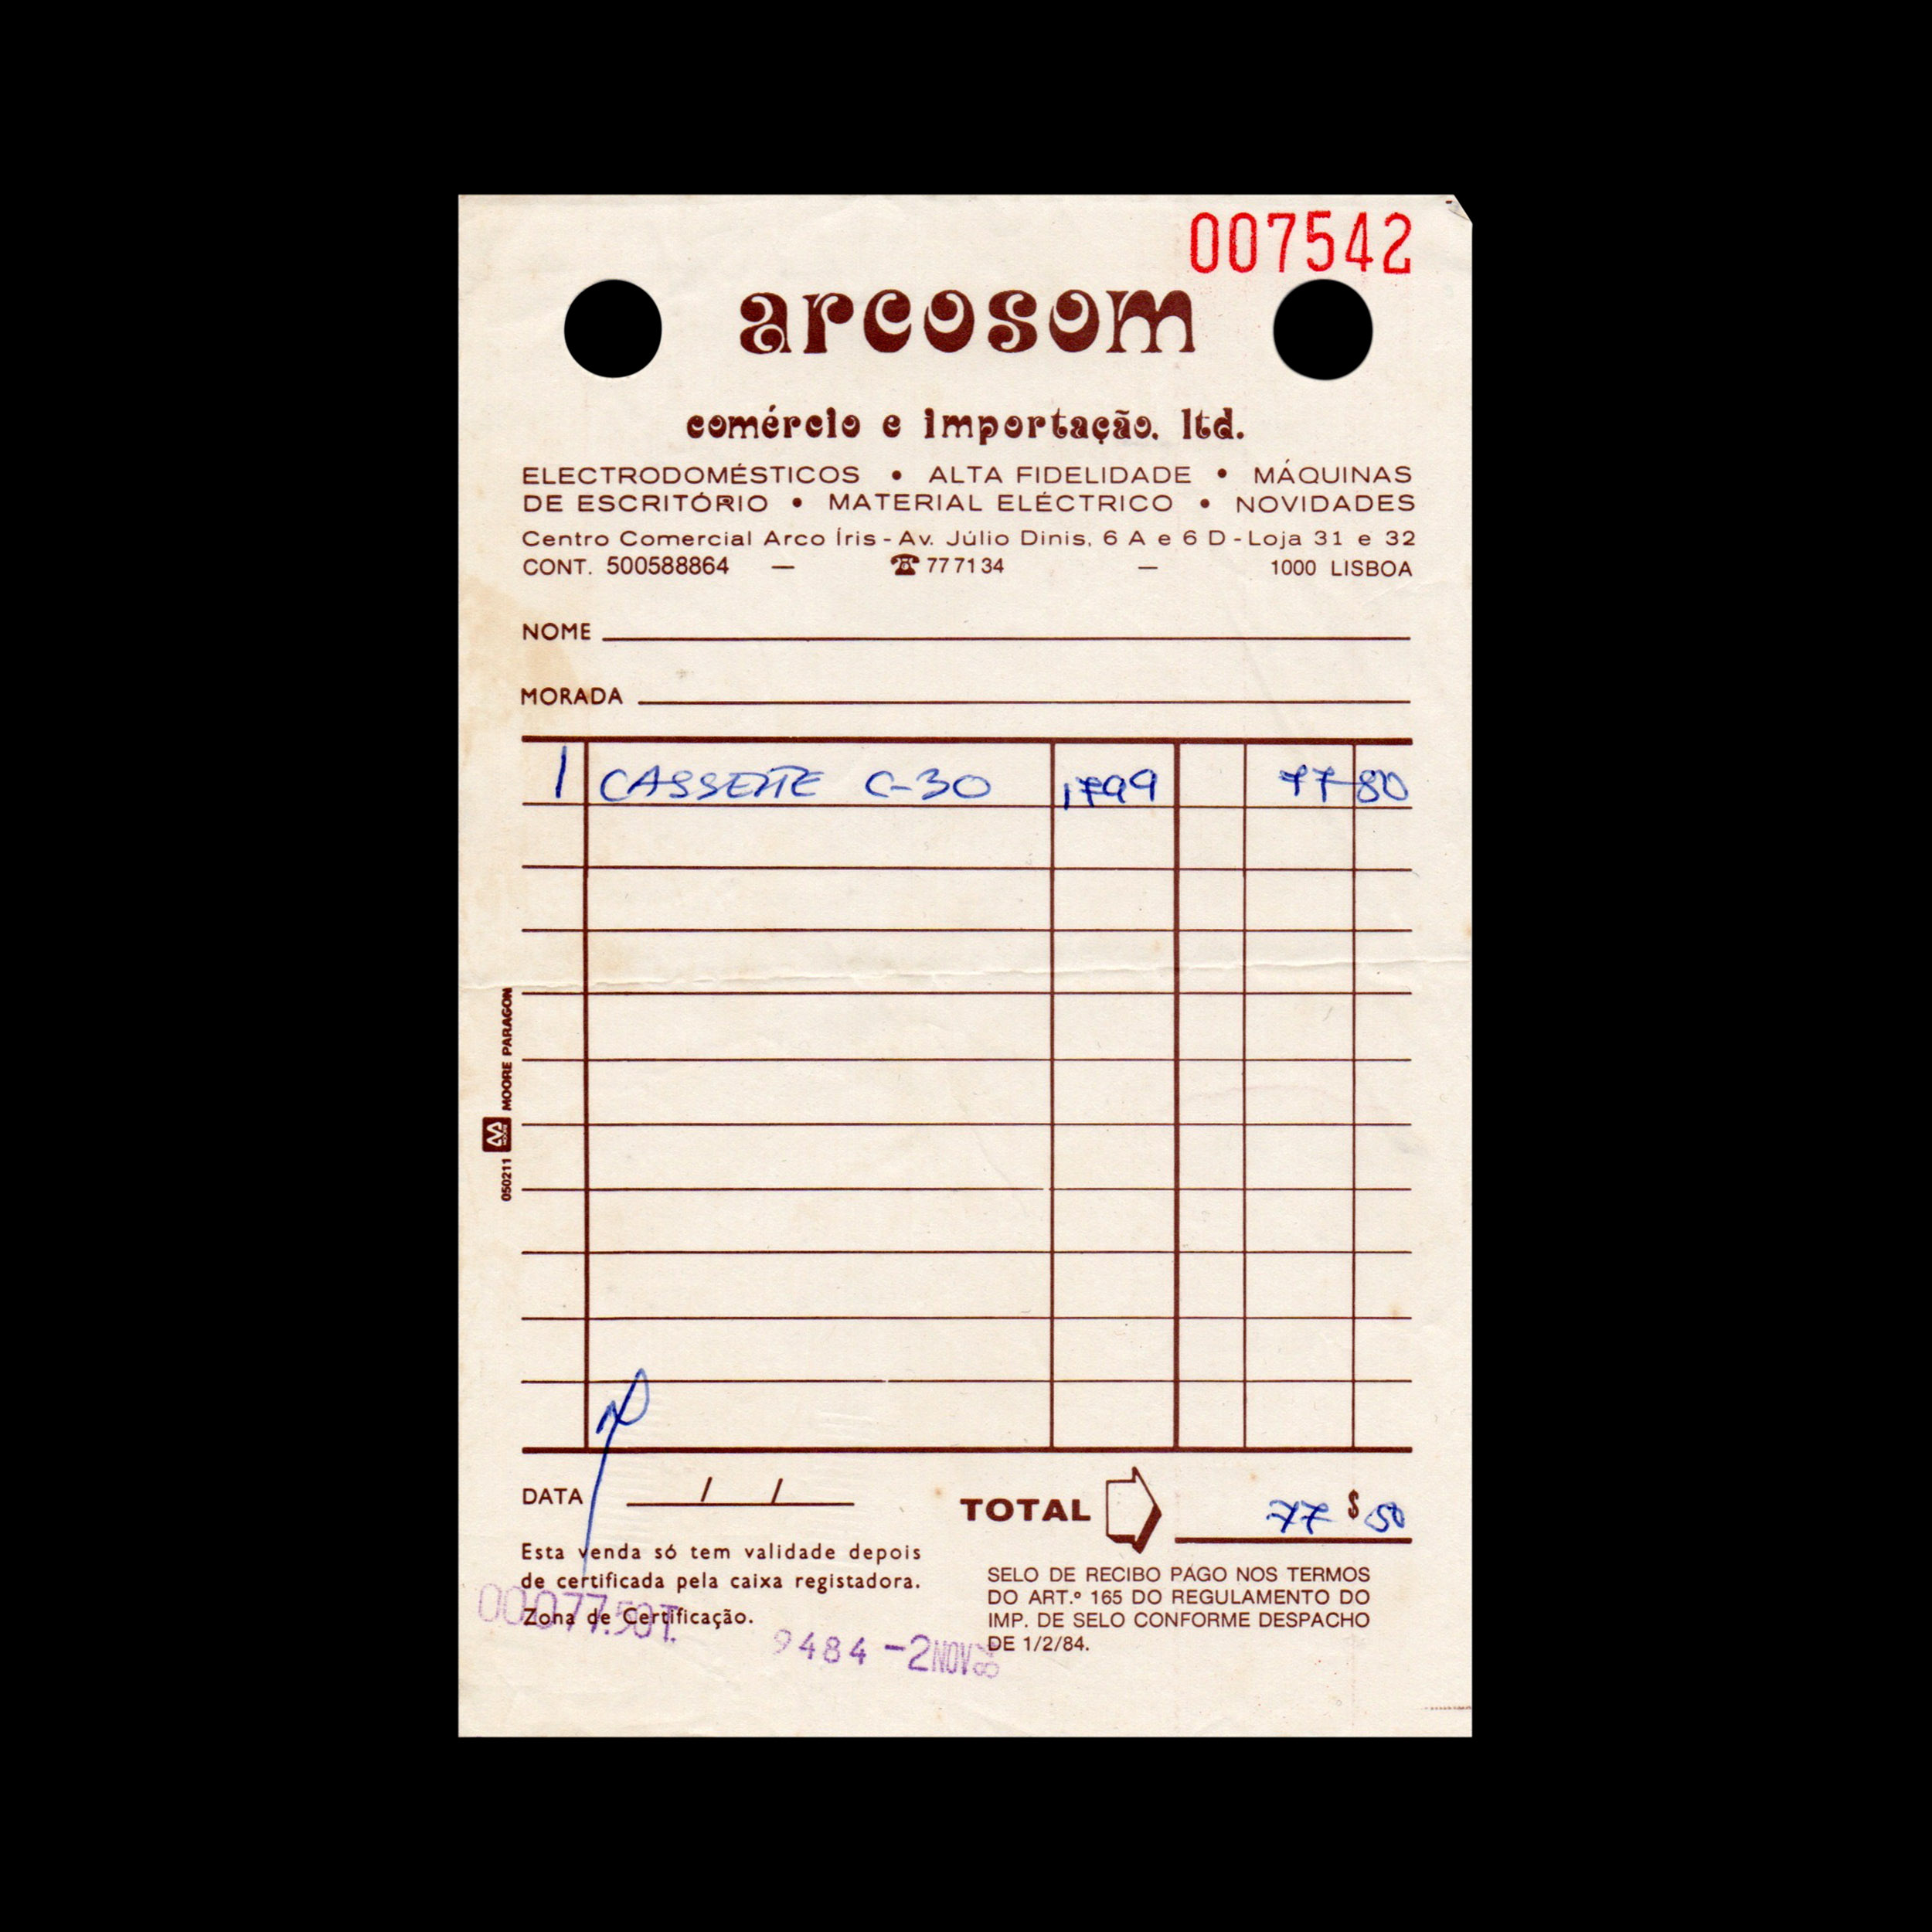 007542
arcosom
comércio e importação, ltd.
ELECTRODOMÉSTICOS • ALTA FIDELIDADE • MÁQUINAS
DE ESCRITÓRIO • MATERIAL ELÉCTRICO • NOVIDADES
Centro Comercial Arco Íris - Av. Júlio Dinis, 6 A e 6 D - Loja 31 e 32
CONT. 500588864 — ☎ 77 71 34 — 1000 LISBOA
NOME
MORADA
1 CASSETTE C-30 1799 77 80
050211 MOORE MOORE PARAGON
DATA / /
TOTAL 77 $ 50
Esta venda só tem validade depois
de certificada pela caixa registadora.
Zona de Certificação.
00077.50T.
9484 -2NOV
SELO DE RECIBO PAGO NOS TERMOS
DO ART.º 165 DO REGULAMENTO DO
IMP. DE SELO CONFORME DESPACHO
DE 1/2/84.